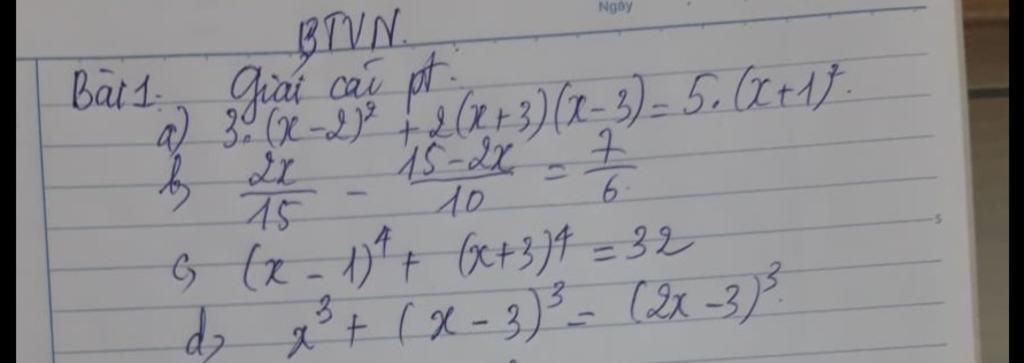 Ngày
BTVN.
Bài 1. Giải các pt.
a) 3.(x-2)² + 2(x+3)(x-3) = 5.(x+1)².
b, 2x/15 - 15-2x/10 = 7/6.
c, (x-1)⁴ + (x+3)⁴ = 32
d, x³ + (x-3)³ = (2x-3)³.